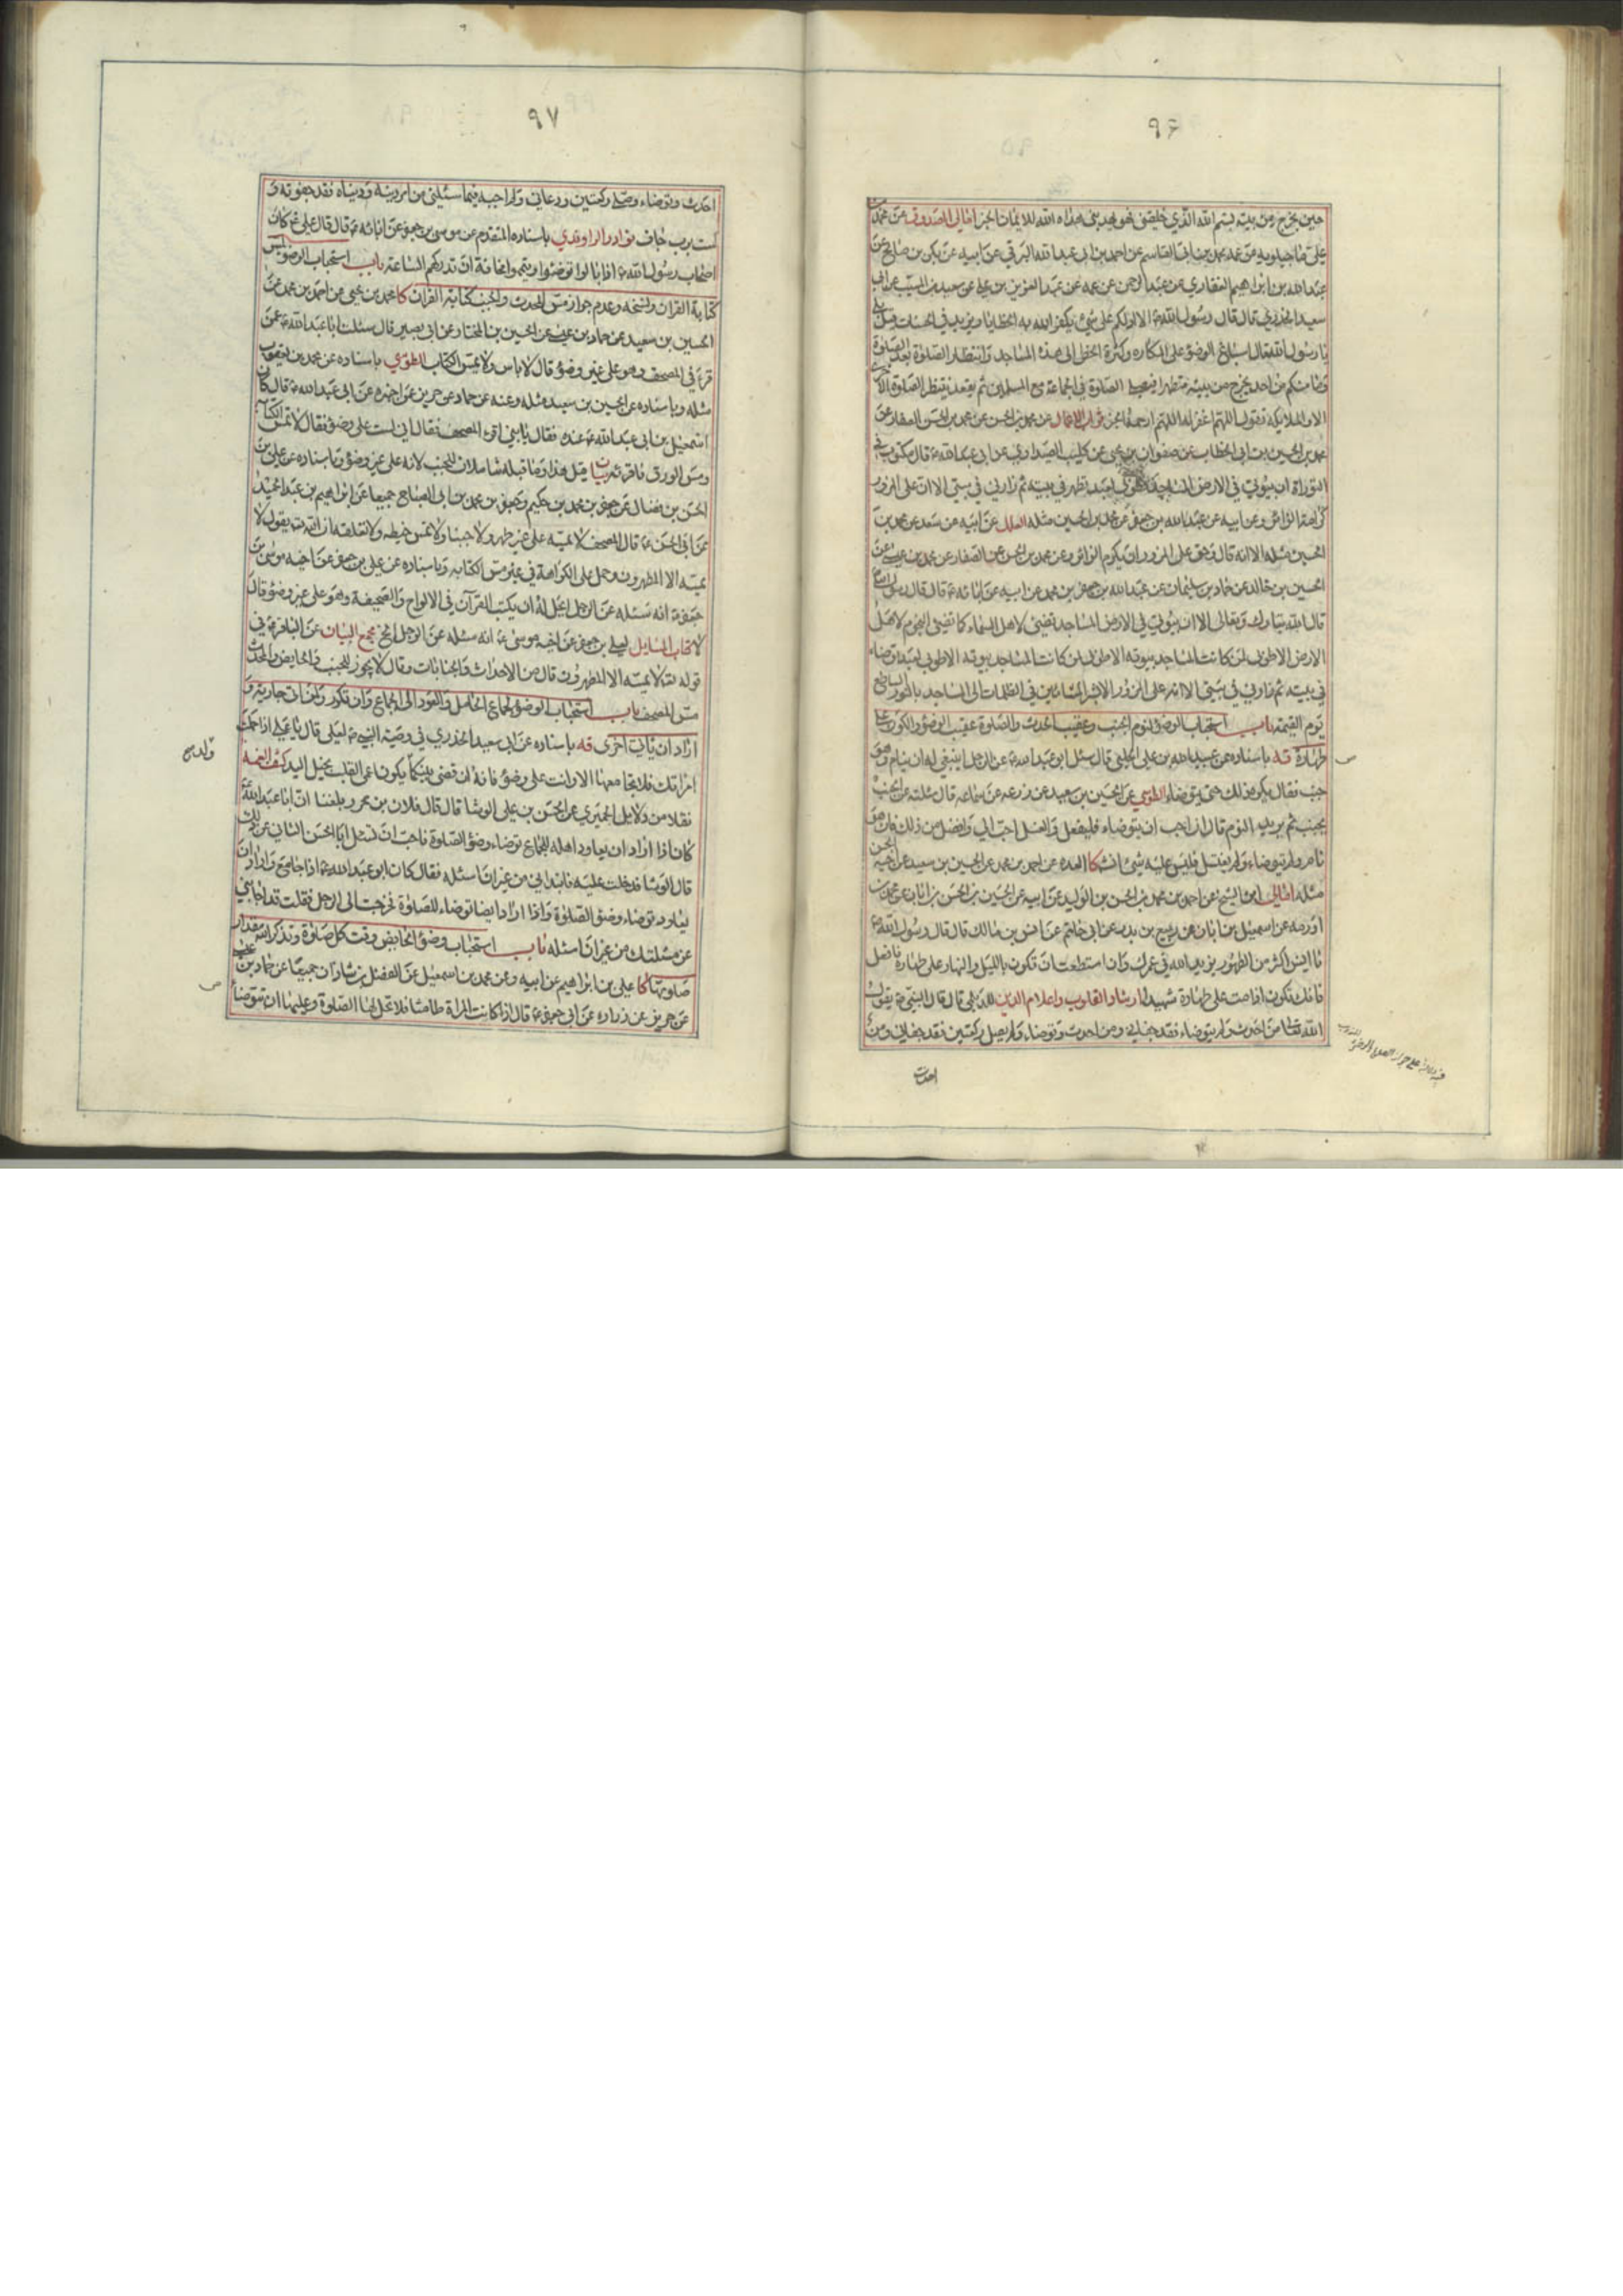 ٩۶
حين يخرج من بيته بسم الله الذي خلقني فهو يهدين هداه الله للايمان الخبر امالي الصدوق عن محمد بن
علي ماجيلويه عن عمه محمد بن ابي القاسم عن احمد بن ابي عبد الله البرقي عن ابيه عن بكر بن صالح عن
عبد الله بن ابراهيم الغفاري عن عبد الرحمن عن عمه عن عبد العزيز بن علي عن سعيد بن المسيب عن ابي
سعيد الخدري قال قال رسول الله ص الا ادلكم على شئ يكفر الله به الخطايا ويزيد في الحسنات قيل بلى
يا رسول الله قال اسباغ الوضوء على المكاره وكثرة الخطى الى هذه المساجد وانتظار الصلوة بعد الصلوة
وما منكم من احد يخرج من بيته متطهرا فيصلي الصلوة في الجماعة مع المسلمين ثم يقعد ينتظر الصلوة الاخرى
الا والملائكة تقول اللهم اغفر له اللهم ارحمه الخبر ثواب الاعمال عن محمد بن الحسن عن محمد بن الحسن الصفار عن
محمد بن الحسين بن ابي الخطاب عن صفوان بن يحيى عن كليب الصيداوي عن ابي عبد الله ع قال مكتوب في
التوراة ان بيوتي في الارض المساجد فطوبى لعبد تطهر في بيته ثم زارني في بيتي الا ان على المزور
كرامة الزائر وعن ابيه عن عبد الله بن جعفر عن محمد بن الحسين مثله العلل عن ابيه عن سعد عن محمد بن
الحسين مثله الا انه قال وحق على المزور ان يكرم الزائر وعن محمد بن الحسن عن الصفار عن محمد بن عيسى عن
الحسين بن خالد عن حماد بن سليمان عن عبد الله بن جعفر بن محمد عن ابيه عن ابائه ع قال قال رسول الله ص
قال الله تبارك وتعالى الا ان بيوتي في الارض المساجد تضئ لاهل السماء كما تضئ النجوم لاهل
الارض الا طوبى لمن كانت المساجد بيوته الا طوبى لمن كانت المساجد بيوته الا طوبى لعبد توضاء
في بيته ثم زارني في بيتي الا ان على المزور الا بشر المشائين في الظلمات الى المساجد بالنور الساطع
يوم القيمة باب استحباب الوضوء لنوم الجنب وعقيب الحدث والصلوة عقيب الوضوء والكون على
طهارة قه باسناده عن عبيد الله بن علي الحلبي قال سئل ابو عبد الله ع عن الرجل اينبغي له ان ينام وهو
جنب فقال يكره ذلك حتى يتوضاء الطوسي عن الحسين بن سعيد عن زرعه عن سماعه قال سئلته عن الجنب
يجنب ثم يريد النوم قال ان احب ان يتوضاء فليفعل والغسل احب الي وافضل من ذلك فان هو
نام ولم يتوضاء ولم يغتسل فليس عليه شئ انشكا العده عن احمد بن محمد عن الحسين بن سعيد عن اخيه الحسن
مثله امالي ابن الشيخ عن احمد بن محمد بن الحسن بن الوليد عن ابيه عن الحسين بن الحسن بن ابان عن محمد بن
اورمه عن اسمعيل بن ابان عن ربيع بن بدر عن ابي حاتم عن انس بن مالك قال قال رسول الله ص
يا انس اكثر من الطهور يزيد الله في عمرك وان استطعت ان تكون بالليل والنهار على طهارة فافعل
فانك تكون اذا مت على طهارة شهيدا ارشاد القلوب واعلام الدين للديلمي قال قال النبي ص يقول
الله تعالى من احدث ولم يتوضاء فقد جفاني ومن احدث وتوضاء ولم يصل ركعتين فقد جفاني ومن
احدث
٩٧
احدث وتوضاء وصلى ركعتين ودعاني ولم اجبه فيما سئلني من امر دينه ودنياه فقد جفوته و
لست برب جاف نوادر الراوندي باسناده المتقدم عن موسى بن جعفر عن ابائه ع قال قال علي ع كان
اصحاب رسول الله ص اذا بالوا توضئوا او تيمموا مخافة ان تدركهم الساعة باب استحباب الوضوء لمس
كتابة القران ونسخه وعدم جواز مس المحدث والجنب كتابة القران كا محمد بن يحيى عن احمد بن محمد عن
الحسين بن سعيد عن حماد بن عيسى عن الحسين بن المختار عن ابي بصير قال سئلت ابا عبد الله ع عمن
قرء في المصحف وهو على غير وضوء قال لا باس ولا يمس الكتاب الطوسي باسناده عن محمد بن يعقوب
مثله وباسناده عن الحسين بن سعيد مثله وعنه عن حماد عن حريز عن اخبره عن ابي عبد الله ع قال كان
اسمعيل بن ابي عبد الله ع عنده فقال يا بني اقرء المصحف فقال اني لست على وضوء فقال لا تمس الكتابة
ومس الورق فاقرئه بيان قيل هذا وما قبله شاملان للجنب لانه على غير وضوء وباسناده عن علي بن
الحسن بن فضال عن جعفر بن محمد بن حكيم وجعفر بن محمد بن ابي الصباح جميعا عن ابراهيم بن عبد الحميد
عن ابي الحسن ع قال المصحف لا تمسه على غير طهر ولا جنبا ولا تمس خيطه ولا تعلقه ان الله تع يقول لا
يمسه الا المطهرون وحمل على الكراهة في غير مس الكتابه وباسناده عن علي بن جعفر عن اخيه موسى بن
جعفر ع انه سئله عن الرجل ايحل له ان يكتب القرآن في الالواح والصحيفة وهو على غير وضوء قال
لا كتاب المسايل لعلي بن جعفر عن اخيه موسى ع انه سئله عن الرجل الخ مجمع البيان عن الباقر ع في
قوله تع لا يمسه الا المطهرون قال من الاحداث والجنابات وقال لا يجوز للجنب والحايض والمحدث
مس المصحف باب استحباب الوضوء لجماع الحامل والعود الى الجماع وان تكرر ولمن اتى جارية و
اراد ان ياتي اخرى قه باسناده عن ابي سعيد الخدري في وصية النبي ص لعلي قال يا علي اذا حملت
امراتك فلا تجامعها الا وانت على وضوء فانه ان قضي بينكما يكون اعمى القلب بخيل اليد كشف الغمه
نقلا من دلايل الحميري عن الحسن بن علي الوشا قال قال فلان بن محرز بلغنا ان ابا عبد الله ع
كان اذا اراد ان يعاود اهله للجماع توضاء وضوء الصلوة فاحب ان تسئل ابا الحسن الثاني عن ذلك
قال الوشا فدخلت عليه فابتداني من غير ان اسئله فقال كان ابو عبد الله ع اذا جامع واراد ان
يعاود توضاء وضوء الصلوة واذا اراد ايضا توضاء للصلوة فخرجت الى الرجل فقلت قد اجابني
عن مسئلتك من غير ان اسئله باب استحباب وضوء الحايض وقت كل صلوة وتذكر الله بمقدار
صلوتها كا علي بن ابراهيم عن ابيه وعن محمد بن اسمعيل عن الفضل بن شاذان جميعا عن حماد بن عيسى
عن حريز عن زراره عن ابي جعفر ع قال اذا كانت المراة طامثا فلا تحل لها الصلوة وعليها ان تتوضا
ولد صح